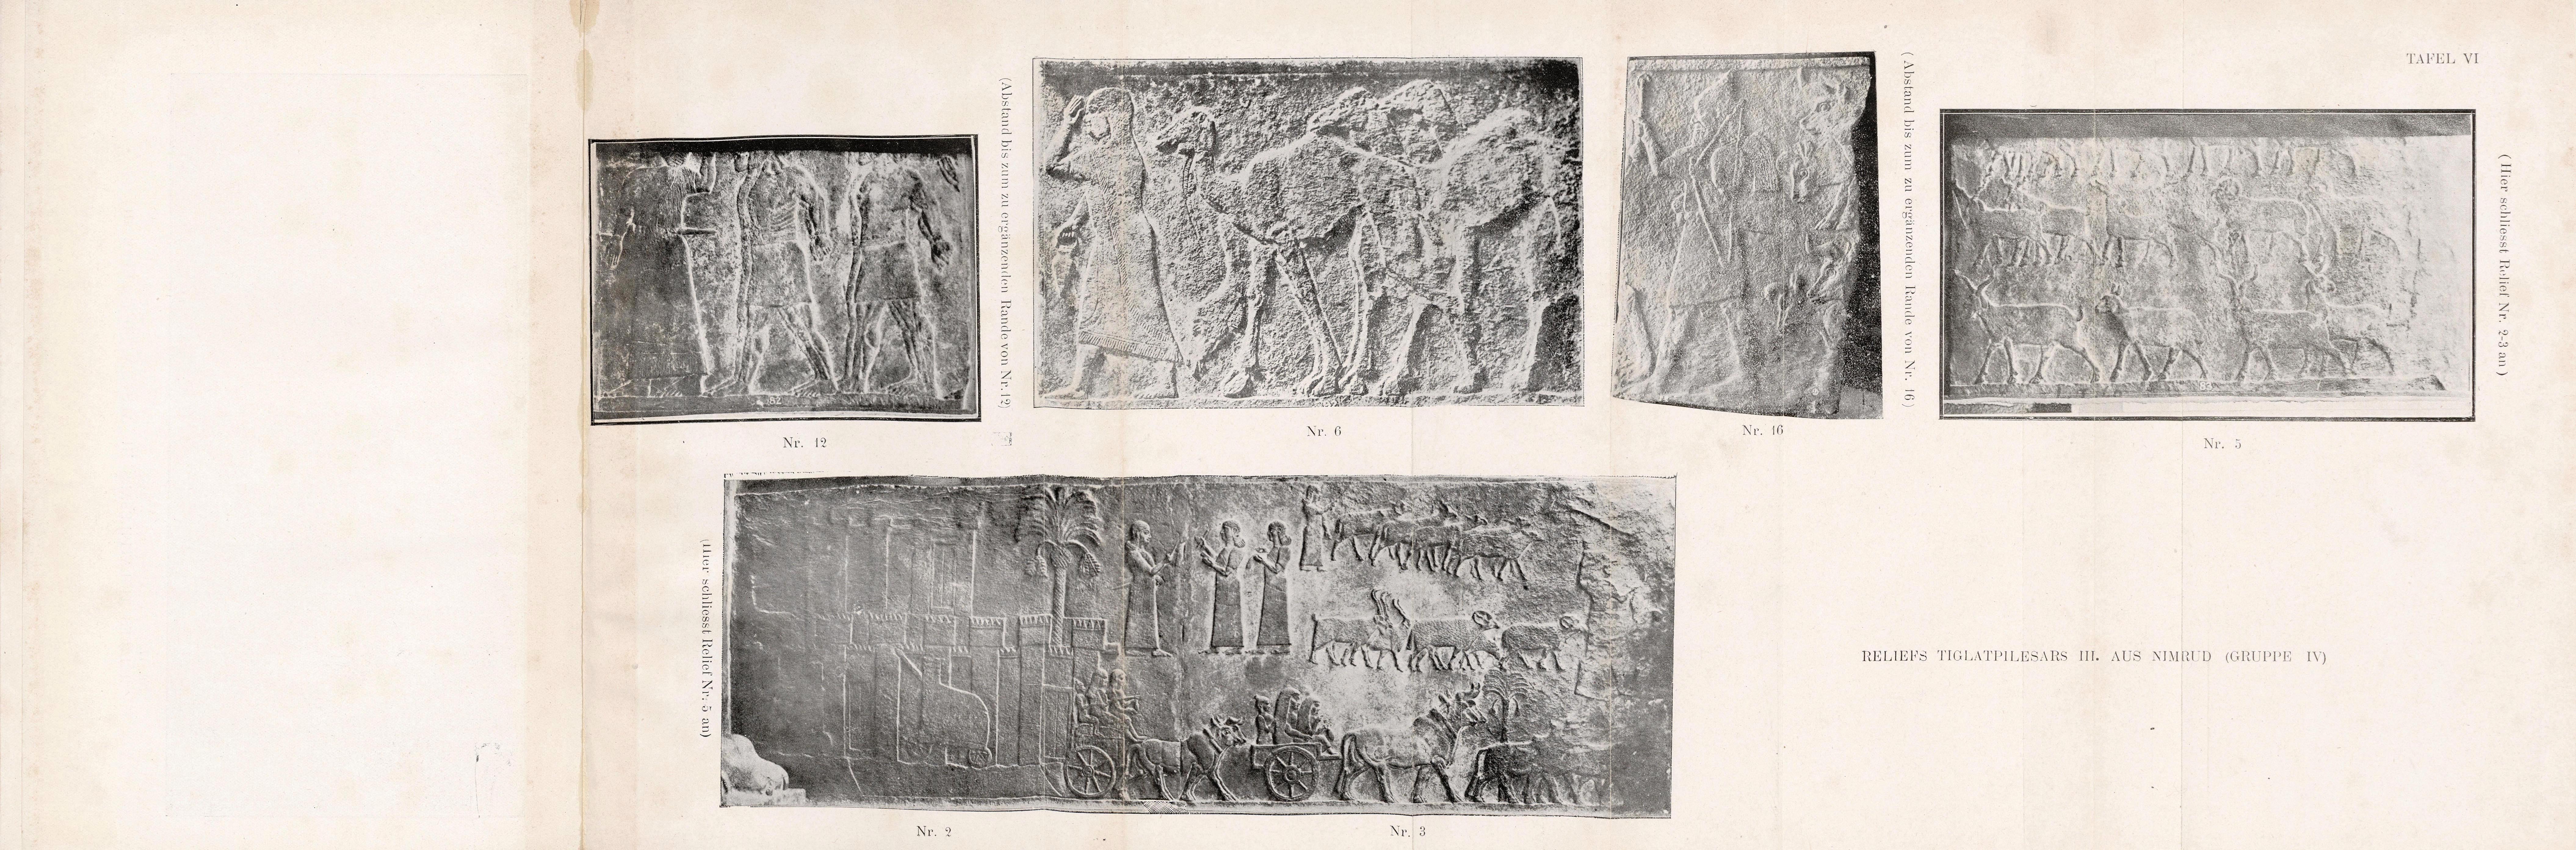 TAFEL VI
(Abstand bis zum zu ergänzenden Rande von Nr. 12)
(Abstand bis zum zu ergänzenden Rande von Nr. 16)
(Hier schliesst Relief Nr. 2-3 an)
82
83
Nr. 12
Nr. 6
Nr. 16
Nr. 5
(Hier schliesst Relief Nr. 5 an)
RELIEFS TIGLATPILESARS III. AUS NIMRUD (GRUPPE IV)
Nr. 2
Nr. 3